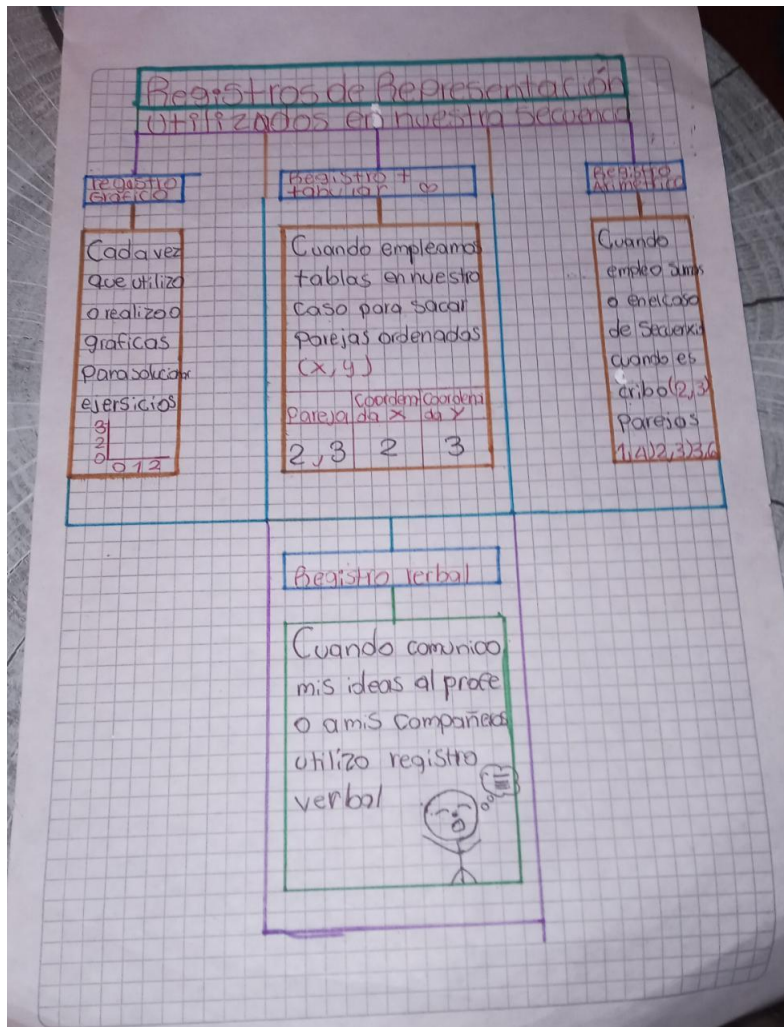 Registros de Representación
Utilizados en nuestra Secuencia
registro
Gráfico
Cada vez
que utilizo
o realizo o
graficas
Para solucionar
ejersicios
3
2
0
0 1 2
Registro +
tabular ∞
Cuando empleamos
tablas en nuestro
caso para sacar
Parejas ordenados
(x,y)
Pareja
Coordena
da x
Coordena
da y
2,3
2
3
Registro
Aritmético
Cuando
empleo sumas
o en el caso
de Secuencias
cuando es
cribo (2,3)
Parejas
1,4)2,3)3,6
Registro verbal
Cuando comunico
mis ideas al profe
o a mis compañeros
utilizo registro
verbal